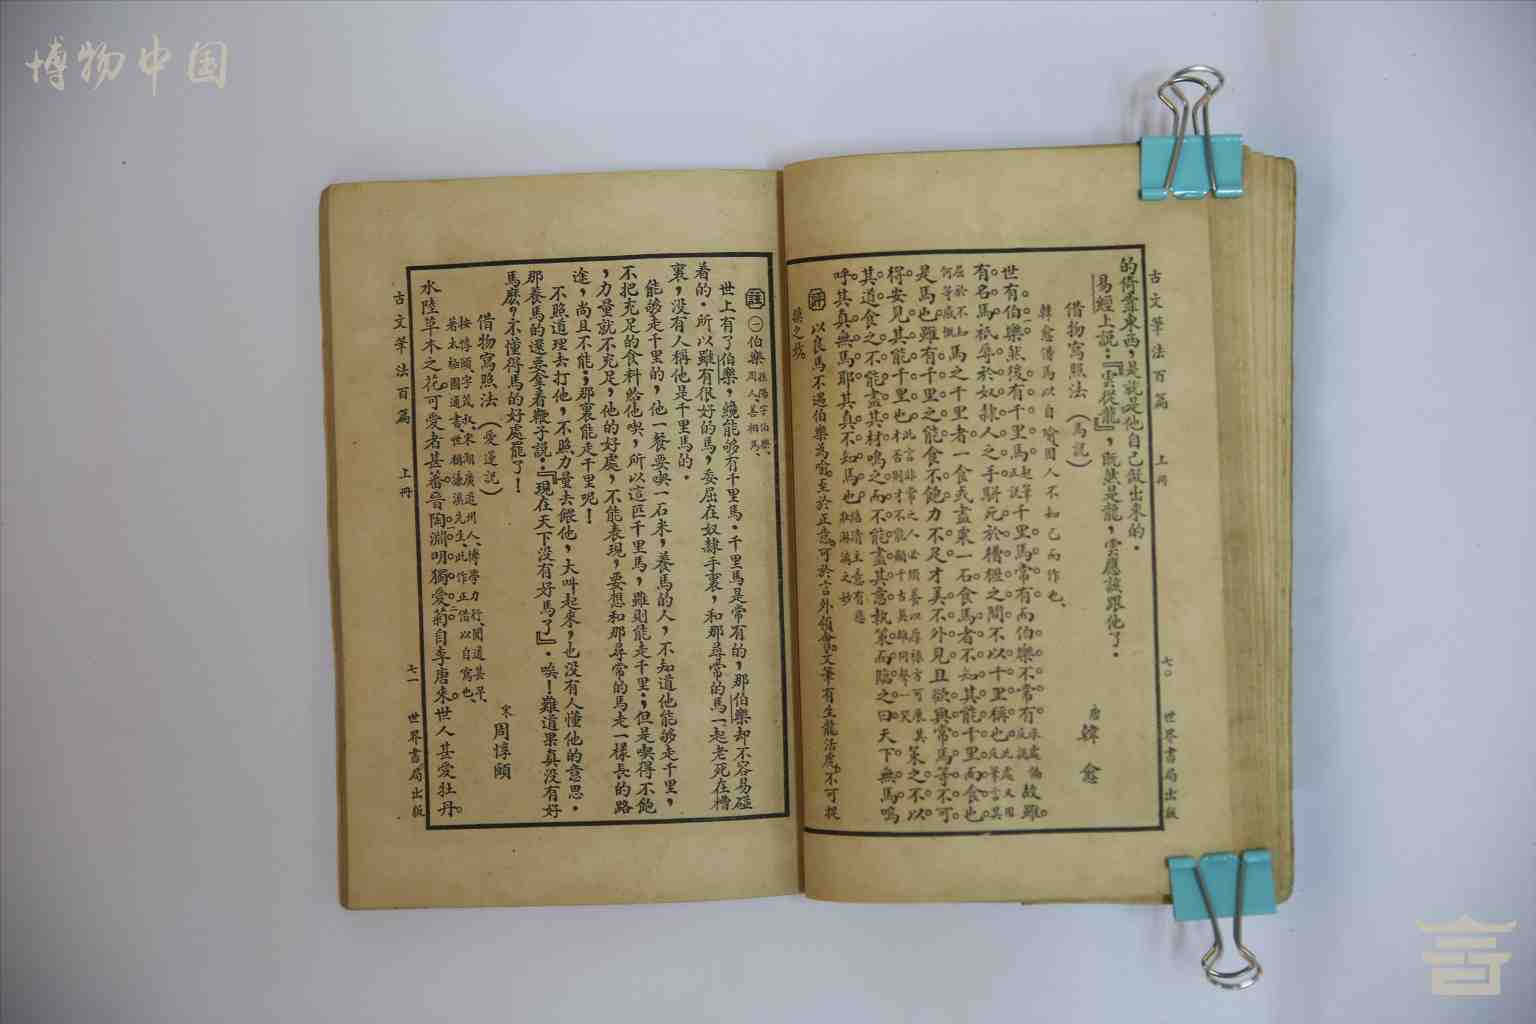 博物中国
古文筆法百篇 上冊 七〇 世界書局出版
的倚靠東西，是就是他自己做出來的．
易經上説：『雲從龍』，既然是龍，雲應該跟他了．
借物寫照法（馬説）
韓愈借馬以自喻因人不知己而作也、
唐 韓愈
世有伯樂㊀然後有千里馬起筆正説千里馬常有而伯樂不常有
故雖有名馬祇辱於奴隸人之手駢死於槽櫪之間不以千里稱也
馬之千里者一食或盡粟一石食馬者不知其能千里而食也
是馬也雖有千里之能食不飽力不足才美不外見且欲與常馬等不可
得安見其能千里也
策之不以
其道食之不能盡其材鳴之而不能盡其意執策而臨之曰天下無馬嗚
呼其真無馬耶其真不知馬也
評 以良馬不遇伯樂為喻至於正意可於言外領會文筆有生龍活虎不可捉
摸之妙
註 ㊀伯樂孫陽字伯樂、周人、善相馬、
世上有了伯樂，纔能够有千里馬．千里馬是常有的，那伯樂却不容易碰
着的．所以雖有很好的馬，委屈在奴隸手裏，和那尋常的馬一起老死在槽
裏，没有人稱他是千里馬的．
能够走千里的，他一餐要喫一石米，養馬的人，不知道他能够走千里，
不把充足的食料給他喫，所以這匹千里馬，雖則能走千里；但是喫得不飽
，力量就不充足，他的好處，不能表現，要想和那尋常的馬走一樣長的路
途，尚且不能；那裏能走千里呢！
不照道理去打他，不照力量去餵他，大叫起來，也没有人懂他的意思．
那養馬的還要拿着鞭子説：『現在天下没有好馬了』．唉！難道果真没有好
馬麽？不懂得馬的好處罷了！
借物寫照法（愛蓮説）
宋 周惇頤
按惇頤字茂叔、宋朝廣道州人、博學力行、聞道甚早、
著太極圖通書、世稱濂溪先生、此作正借以自寫也、
水陸草木之花可愛者甚蕃晉陶淵明㊀獨愛菊㊁自李唐來世人甚愛牡丹
古文筆法百篇 上冊 七一 世界書局出版